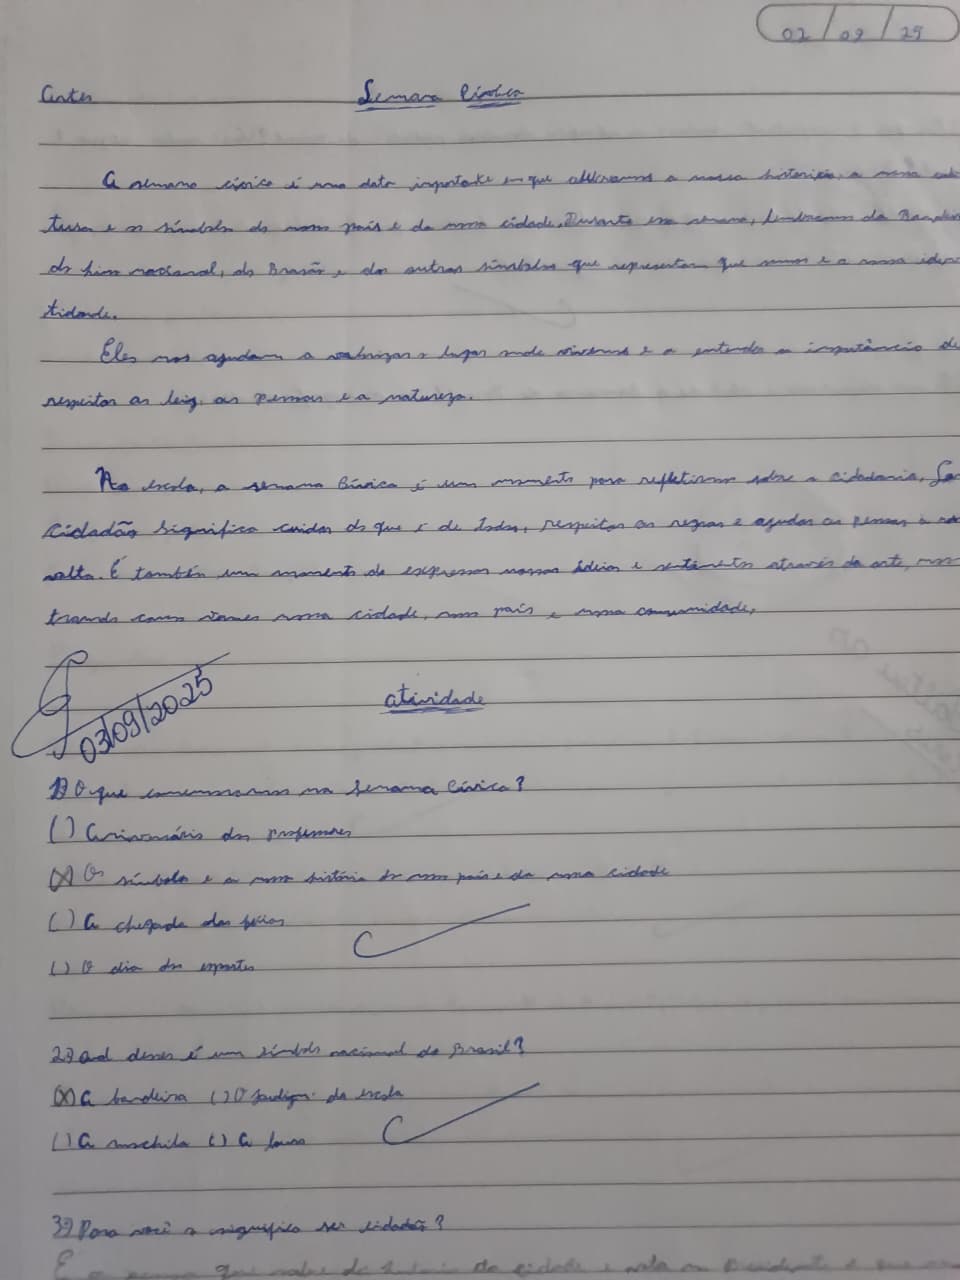 02/09/25
Artes Semana Cívica
A semana cívica é uma data importante em que celebramos a nossa história, a nossa cul
tura e os símbolos do nosso país e da nossa cidade. Durante essa semana, lembramos da Bandeira
do hino nacional, do Brasão e dos outros símbolos que representam que somos e a nossa iden
tidade.
Eles nos ajudam a valorizar o lugar onde vivemos e a entender a importância de
respeitar as leis, as pessoas e a natureza.
Na escola, a semana Cívica é um momento para refletirmos sobre a cidadania. Ser
cidadão significa cuidar do que é de todos, respeitar as regras e ajudar as pessoas à nossa
volta. É também um momento de expressar nossas ideias e sentimentos através da arte, mos
trando como vemos nossa cidade, nosso país e nossa comunidade.
03/09/2025
atividade
1) O que comemoramos na Semana Cívica?
( ) Aniversário dos professores
(X) Os símbolos e a nossa história do nosso país e da nossa cidade
( ) A chegada das férias
( ) O dia dos esportes
2) Qual desses é um símbolo nacional do Brasil?
(X) A bandeira ( ) O da escola
( ) A mochila ( ) A lousa
3) Para você o significa ser cidadão?
E a que da cidade e